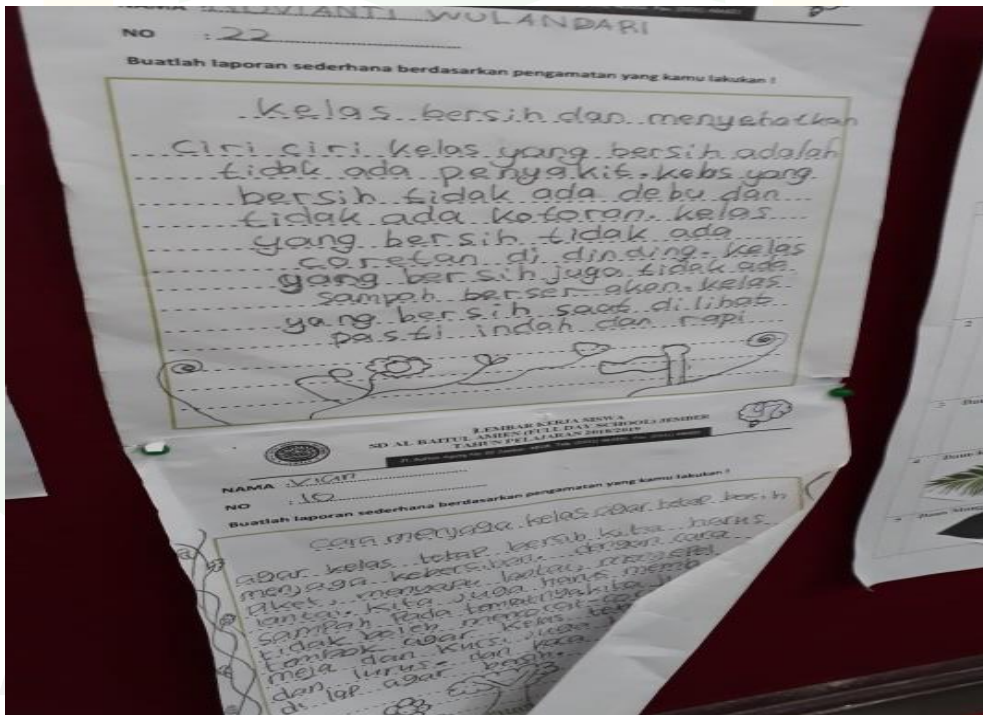 WULANDARI
NO : 22
Buatlah laporan sederhana berdasarkan pengamatan yang kamu lakukan !
Kelas bersih dan menyehatkan
Ciri ciri kelas yang bersih adalah
tidak ada penyakit. kelas yang
bersih tidak ada debu dan
tidak ada kotoran. kelas
yang bersih tidak ada
coretan di dinding. kelas
yang bersih juga tidak ada
sampah berser akan. kelas
yang bersih saat dilihat
pasti indah dan rapi
LEMBAR KERJA SISWA
SD AL BAITUL AMIEN (FULL DAY SCHOOL) JEMBER
TAHUN PELAJARAN 2018/2019
NAMA : Vian
NO : 10
Buatlah laporan sederhana berdasarkan pengamatan yang kamu lakukan !
cara menjaga kelas agar tetap bersih
agar kelas tetap bersih kita harus
menjaga kebersihan. dengan cara
piket, menyapu lantai, mengepel
lantai. kita juga harus
sampah pada tempatnya kita
tidak boleh
tembok agar kelas
meja dan kursi juga
lurus. dan kaca
di lap agar bersih.
2
3
4
5